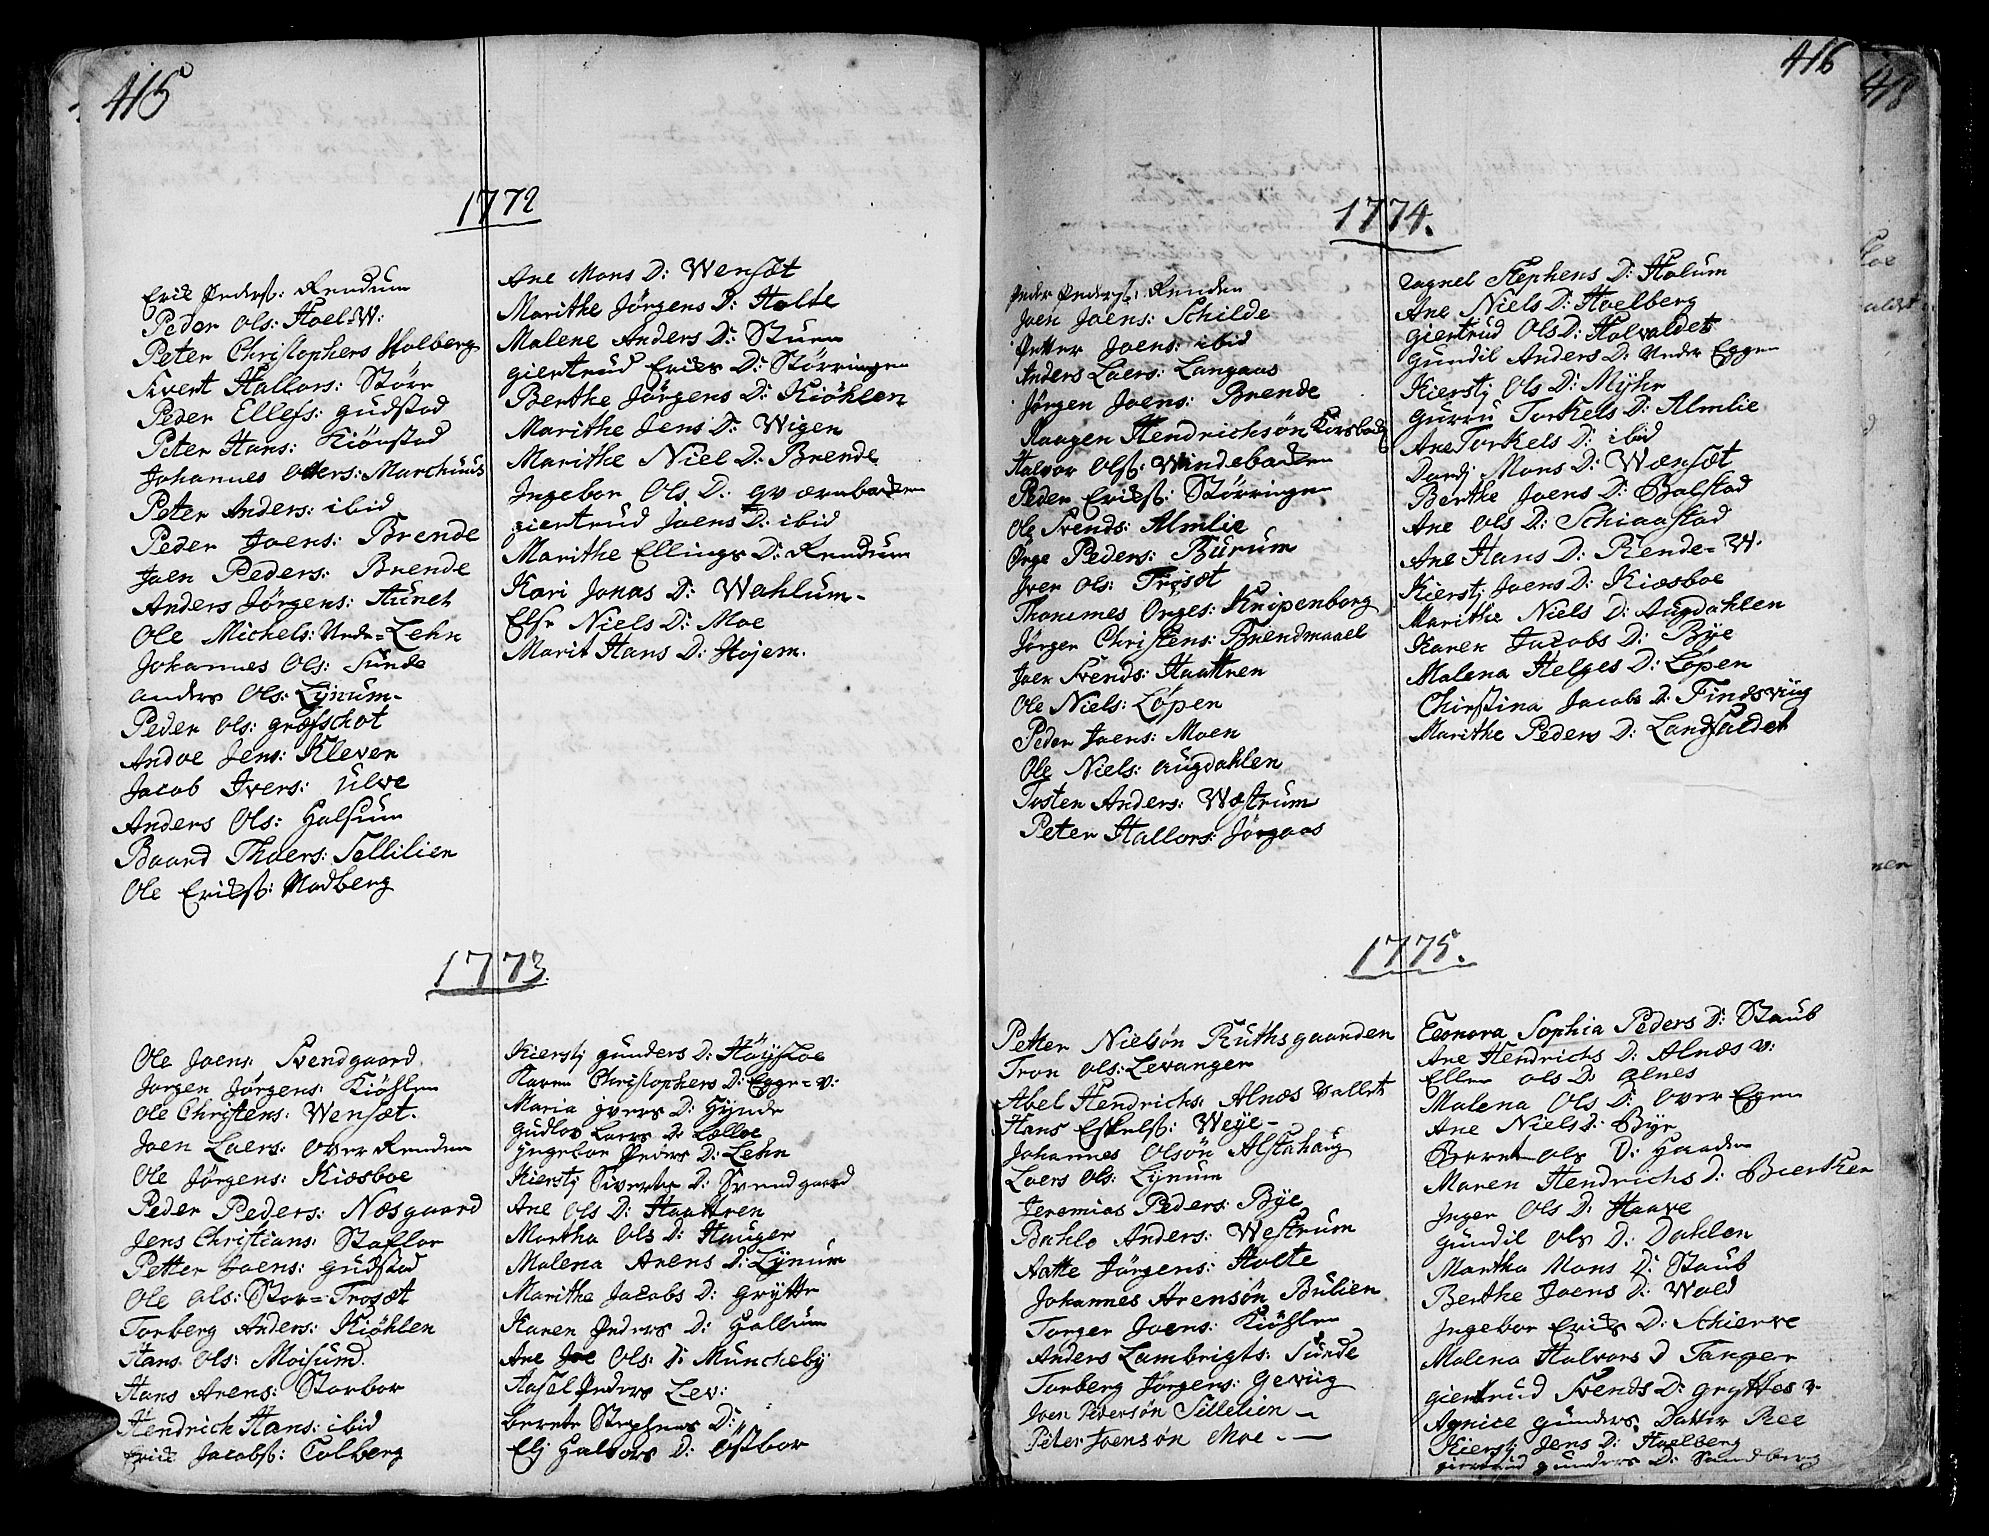 415
1772
Erik Pederß: Rendum
Peder Ols: Hoel=W:
Peter Christophers Holberg
Sivert Hallors: Störe
Peder Ellefs: gudstad
Peter Hans: Kiönstad
Johannes Osters: Marchuus
Peter Anders: ibid
Peder Joens: Brende
Joen Peders: Brende
Anders Jörgens: Hunet
Ole Michels: Nede=Lehn
Johannes Ols: Sunde
anders Ols: Lynum-
Peder Ols: græfschot
Andoe Jens: Kleven
Jacob Ivers: Ulve
Anders Ols: Halsum
Baard Thoers: Sellilien
Ole Eriksß: Nadberg
Ane Mons D: Wensæt
Marithe Jörgens D: Holte
Malene Anders D: Stuen
giertrud Eriks D: Störringen
Berthe Jörgens D: Kiöhlen
Marithe Jens D: Wigen
Marithe Niel D: Brende
Ingebor Ols D: gværnbakken
giertrud Joens D: ibid
Marithe Ellings D: Rendum
Kari Jonas D: Wahlum-
Else Niels D: Moe
Marit Hans D: Højem.
1773.
Ole Joens: Svendgaard
Jorgen Jörgens: Kiöhlen
Ole Christens: Wensæt.
Joen Laers: over Renden
Ole Jörgens: Kiosboe
Peder Peders: Næsgaard
Jens Christians: Stoflor
Petter Joens: gudstad
Ole Ols: Stor=Trosæt
Torberg Anders: Kiöhlen
Hans Ols: Moisund.
Hans Arens: Storbor
Hendrich Hans: ibid
Erik Jacobß: Tolberg
Kierstj gunders D: Höysloe
Karen Christophers D: Egge=v:
Maria ivers D: Hynde
Gudlov Laers D: Lælloe
Ingebor Peders D: Lehn
Kierstj Siverts D: Svendgaard
Ane Ols D: Haattren
Martha Ols D: Hauger
Malena Arens D: Lynum
Marithe Jacobs D: grÿtte
Karen Peders D: Hallum
Ane Joe Ols: D: Munchebÿ
Hasel Peders Lev:
berete Stephens D:
Elj Halvors D: Östbor
416
1774.
Peder Pederß: Renden
Joen Joens: Schilde
Petter Joens: ibid
Anders Laers: Langaas
Jörgen Joens: Brende
Haagen Hendrichsön Korsbak
Halvor Olß: Windebakken
Peder Erikß: Störringen
Ole Svends: Almlie
Örge Peders: Burum
Iver Ols: Trösæt
Thommes Örges: Knipenborg
Jörgen Christens: Brendmaael
Joen Svends: Haattren
Ole Niels: Löpen
Peder Joens: Moen
Ole Niels: augdahlen
Tosten Anders: Wæstrum
Peter Hallors: Jörgaas
Ragnel Stephens D: Holum
Ane Niels D: Hoelberg
giertrud Ols D: Holvaldet
gundil Anders D: Neder Eggen
Kierstj Ols D: Mÿhr
gurru Torkels D: Almlie
Ane Torkels D: ibid
Dordj Mons D: Wænsæt
Berthe Joens D: Bolstad
Ane Ols D: Schiaastad
Ane Hans D: Rende=W.
Kierstj Joens D: Kiosboe
Marithe Niels D: Augdahlen
Karen Jacobs D: Bye
Malena Helges D: Löpen
Christina Jacobs D: Findsviig
Marithe Peders D: Landfaldet
1775.
Petter Nielsön Ruthsgaarden
Tron Ols: Levanger
Abel Hendrichs: Alnæs vallet
Hans Eskelß: Weye-
Johannes Olsön Alstahaug
Laers Ols: Lynum
Jeremias Peders: Bye
Bahlo Anders: Westrum
Aatte Jörgens: Holte
Johannes Arensön Bulien
Torger Joens: Kiöhlen
Anders Lambrigts: Sunde
Torberg Jörgens: Geviig
Joen Pedersön Sillelien
Peter Joensön Moe
Eleonora Sophia Peders D: Staub
Ane Hendrichs D: Alnæs v:
Ellen Ols D: Alnes
Malena Ols D: Over Egen
Ane Niels D: Bye
Beret Ols D: Haaden
Maren Hendrichs D: Bierken
Inger Ols D: Haave
gundil Ols D: Dahlen
Martha Mons D: Staub
Berthe Joens D: Wold
Ingebor Eriks D: Schierve
Malena Halvors D Tanger
giertrud Svends D: grÿttes v.
Agnice gunders Datter Ree
Kierstj Jens D: Hoelberg
giertrud gunders D: Sandberg
418